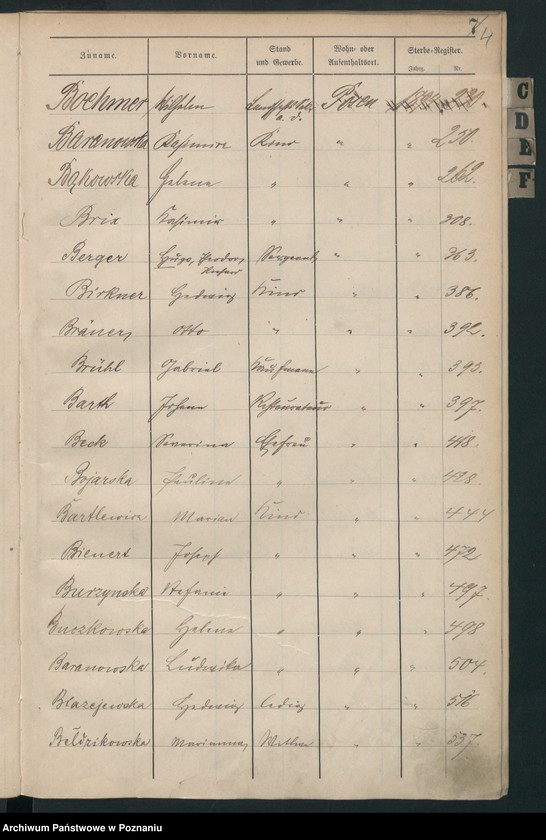 7/4
Zuname. Vorname. Stand und Gewerbe. Wohn- oder Aufenthaltsort. Sterbe-Register. Jahrg. Nr.
Boehmer, Wilhelm a. d. Posen 230.
Baranowska Kasimira Kind " " 250.
Bąkowska Helene " " " 262.
Brix Kasimir " " " 308.
Berger Hugo, Theodor, Sergeant " " 363.
Birkner Hedwig Kind " " 386.
Bräuer, Otto " " " 392.
Brühl Gabriel Kaufmann " " 393.
Barth Johann Restaurateur " " 397.
Beck Severina Ehefrau " " 418.
Bojarska Pauline " " " 428
Bartlewicz Marian Kind " " 444
Bienert Joseph " " " 472
Burzynska Stefanie " " " 497.
Buczkowska Helene " " " 498
Baranowska Ludwika " " " 504.
Blazejewska Hedwig ledig " " 516
Beldzikowska Marianna, Wittwe " " 537.
C
D
E
F
Archiwum Państwowe w Poznaniu